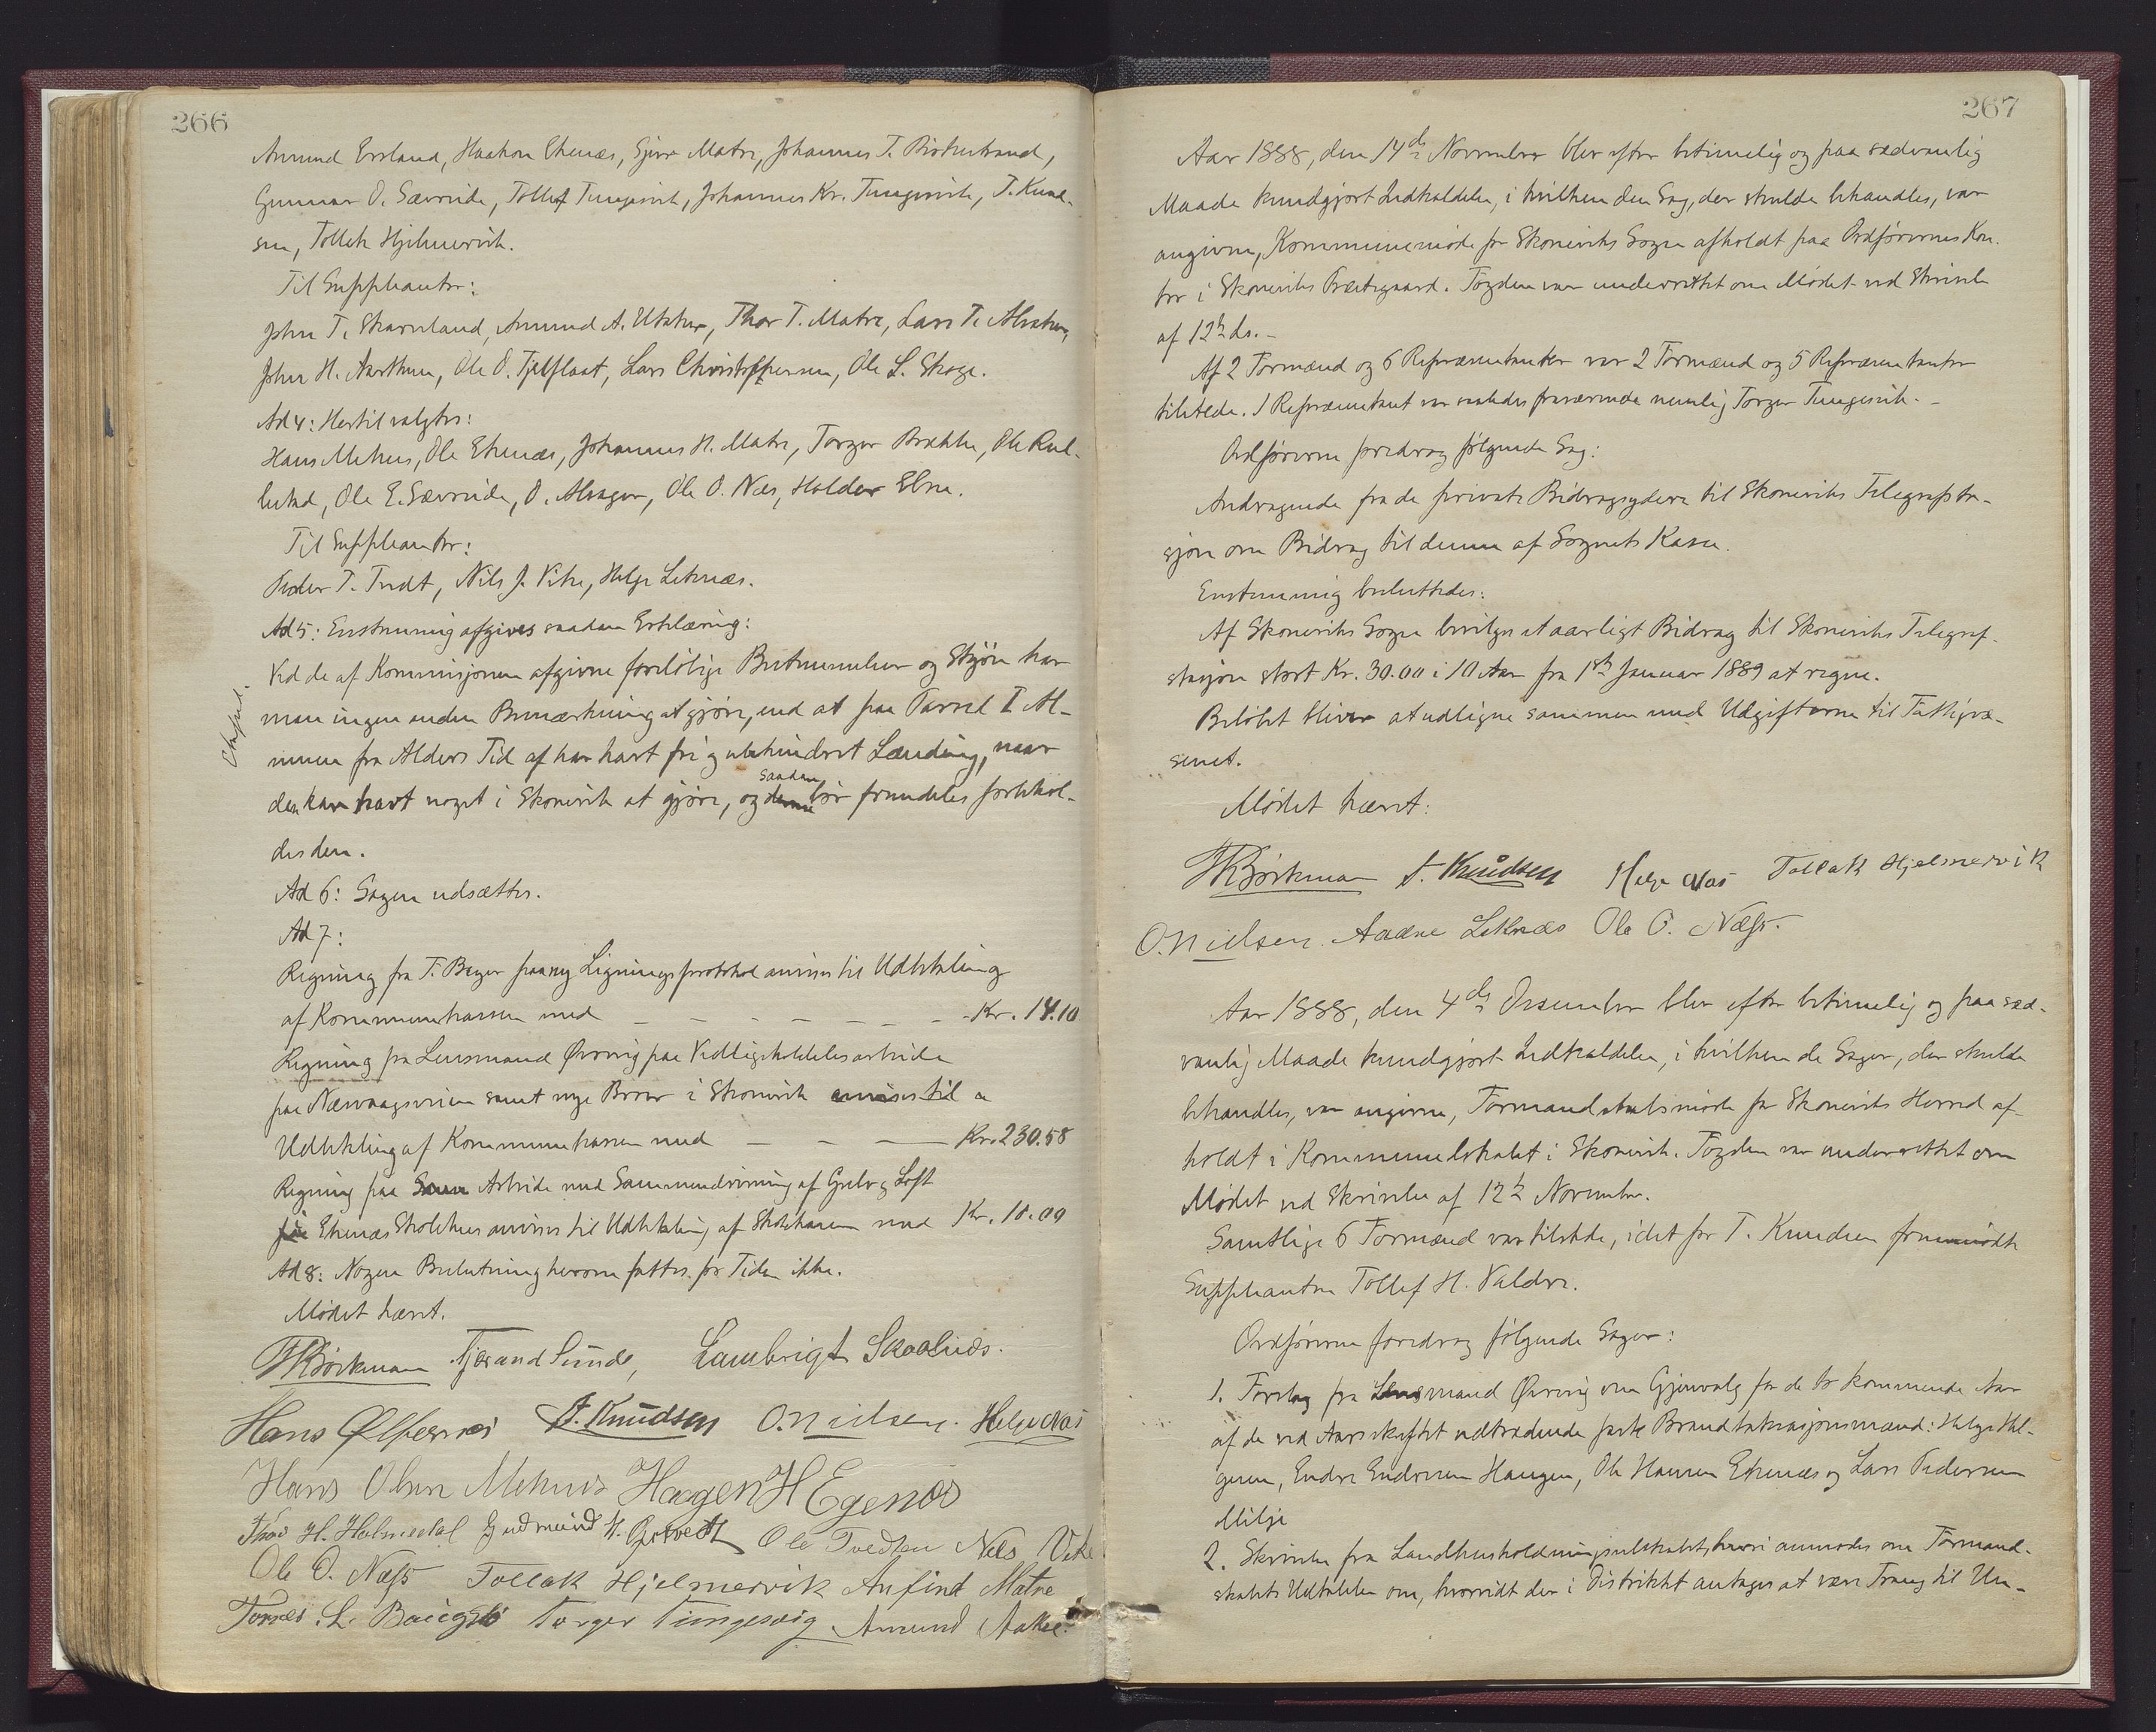 266
Amund Ersland, Haakon Ekenæs, Sjur Matre, Johannes T. Birkestrand,
Gunnar O. Sævreide, Tollef Tungesvik, Johannes Kr. Tungesvik, T. Knud-
sen, Tollak Hjelmervik.
Til Suppleanter:
John T. Skarveland, Amund A. Utaker, Thor T. Matre, Lars T. Alsaker,
John H. Aarthun, Ole O. Fjelflaat, Lars Christoffersen, Ole L. Skoge.
Ad 4: Hertil valgtes:
Hans Mehus, Ole Ekenæs, Johannes H. Matre, Torger Brække, Ole Rul-
lestad, Ole E. Sævreide, O. Alsager, Ole O. Næs, Haldor Ebne.
Til Suppleanter:
Peder T. Tvedt, Nils J. Vike, Helge Leknæs.
Ad 5: Enstemmig afgives saadan Erklæring:
Ved de af Kommisjonen afgivne foreløbige Bestemmelser og Skjøn har
man ingen anden Bemærkning at gjøre, end at paa Parcel I Al-
muen fra Alders Tid af har havt fri og uhindret Landing, naar
den har havt noget i Skonevik at gjøre, og denne saadan bør fremdeles forbehol-
des den.
Ad 6: Sagen udsættes.
Ad 7:
Regning fra F. Beyer paa ny Ligningsprotokol anvises til Udbetaling
af Kommunekassen med - - - - - - - Kr. 14.10
Regning fra Lensmand Øvrevig paa Vedligeholdelsesarbeide
paa Nævaagsveien samt nye Broer i Skonevik anvises til
Udbetaling af Kommunekassen med - - - Kr. 230.58
Regning paa Arbeide med Sammendrivning af Gulv og Loft
Ekenæs Skolehus anvises til Udbetaling af Skolekassen med Kr. 10.00
Ad 8: Nogen Beslutning herom fattes for Tiden ikke.
Mødet hævet.
Bjørkman Tjerand Sunde, Lambrigt Skaalnes.
Hans Ølfernes T. Knudsen O. Nielsen. Helge Næs
Hans Olsen Mehus Haagen H Egenæs
Thor H. Holmedal Gudmund H. Ole Tvedten Nils Vike
Ole O. Næss Tollak Hjelmervik Anfind Matre
L. Baugstø Torger Tungesvig Amund Aaker
267
Aar 1888, den 14de November blev efter betimelig og paa sædvanlig
Maade kundgjort Indkaldelse, i hvilken den Sag, der skulde behandles, var
angiven, Kommunemøde for Skoneviks Sogn afholdt paa Ordførerens Kon-
tor i Skoneviks Præstegaard. Fogden var underrettet om Mødet ved Skrivelse
af 12te ds. -
Af 2 Formænd og 6 Repræsentanter var 2 Formænd og 5 Repræsentanter
tilstede. 1 Repræsentant var saaledes fraværende nemlig Torger Tungesvik. -
Ordføreren foredrog følgende Sag:
Andragende fra de private Bidragsydere til Skoneviks Telegrafsta-
sjon om Bidrag til denne af Sognets Kasse.
Enstemmig besluttedes:
Af Skoneviks Sogn bevilges et aarligt Bidrag til Skoneviks Telegraf-
stasjon stort Kr. 30.00 i 10 Aar fra 1ste Januar 1889 at regne.
Beløbet bliver at udligne sammen med Udgifterne til Fattigvæ-
senet.
Mødet hævet:
Bjørkman T. Knudsen Helge Næs Tollak Hjelmervik
O. Nielsen. Aadne Leknæs Ole O. Næss.
Aar 1888, den 4de Desember blev efter betimelig og paa sæd-
vanlig Maade kundgjort Indkaldelse, i hvilken de Sager, der skulde
behandles, var angivne, Formandskabsmøde for Skoneviks Herred af-
holdt i Kommunelokalet i Skonevik. Fogden var underrettet om
Mødet ved Skrivelse af 12te November.
Samtlige 6 Formænd var tilstede, idet for T. Knudsen fremmødte
Suppleanten Tollef H. Valdre.
Ordføreren foredrog følgende Sager:
1. Forslag fra Lensmand Øvrevig om Gjenvalg for de to kommende Aar
af de ved Aarsskiftet udtrædende faste Brandtaksasjonsmænd: Helge Hel-
gesen, Endre Endresen Haugen, Ole Hansen Ekenæs og Lars Pedersen
Milje
2. Skrivelse fra Landhusholdningsselskabet, hvori anmodes om Formand-
skabets Udtalelse om, hvorvidt der i Distriktet antages at være Trang til Un-